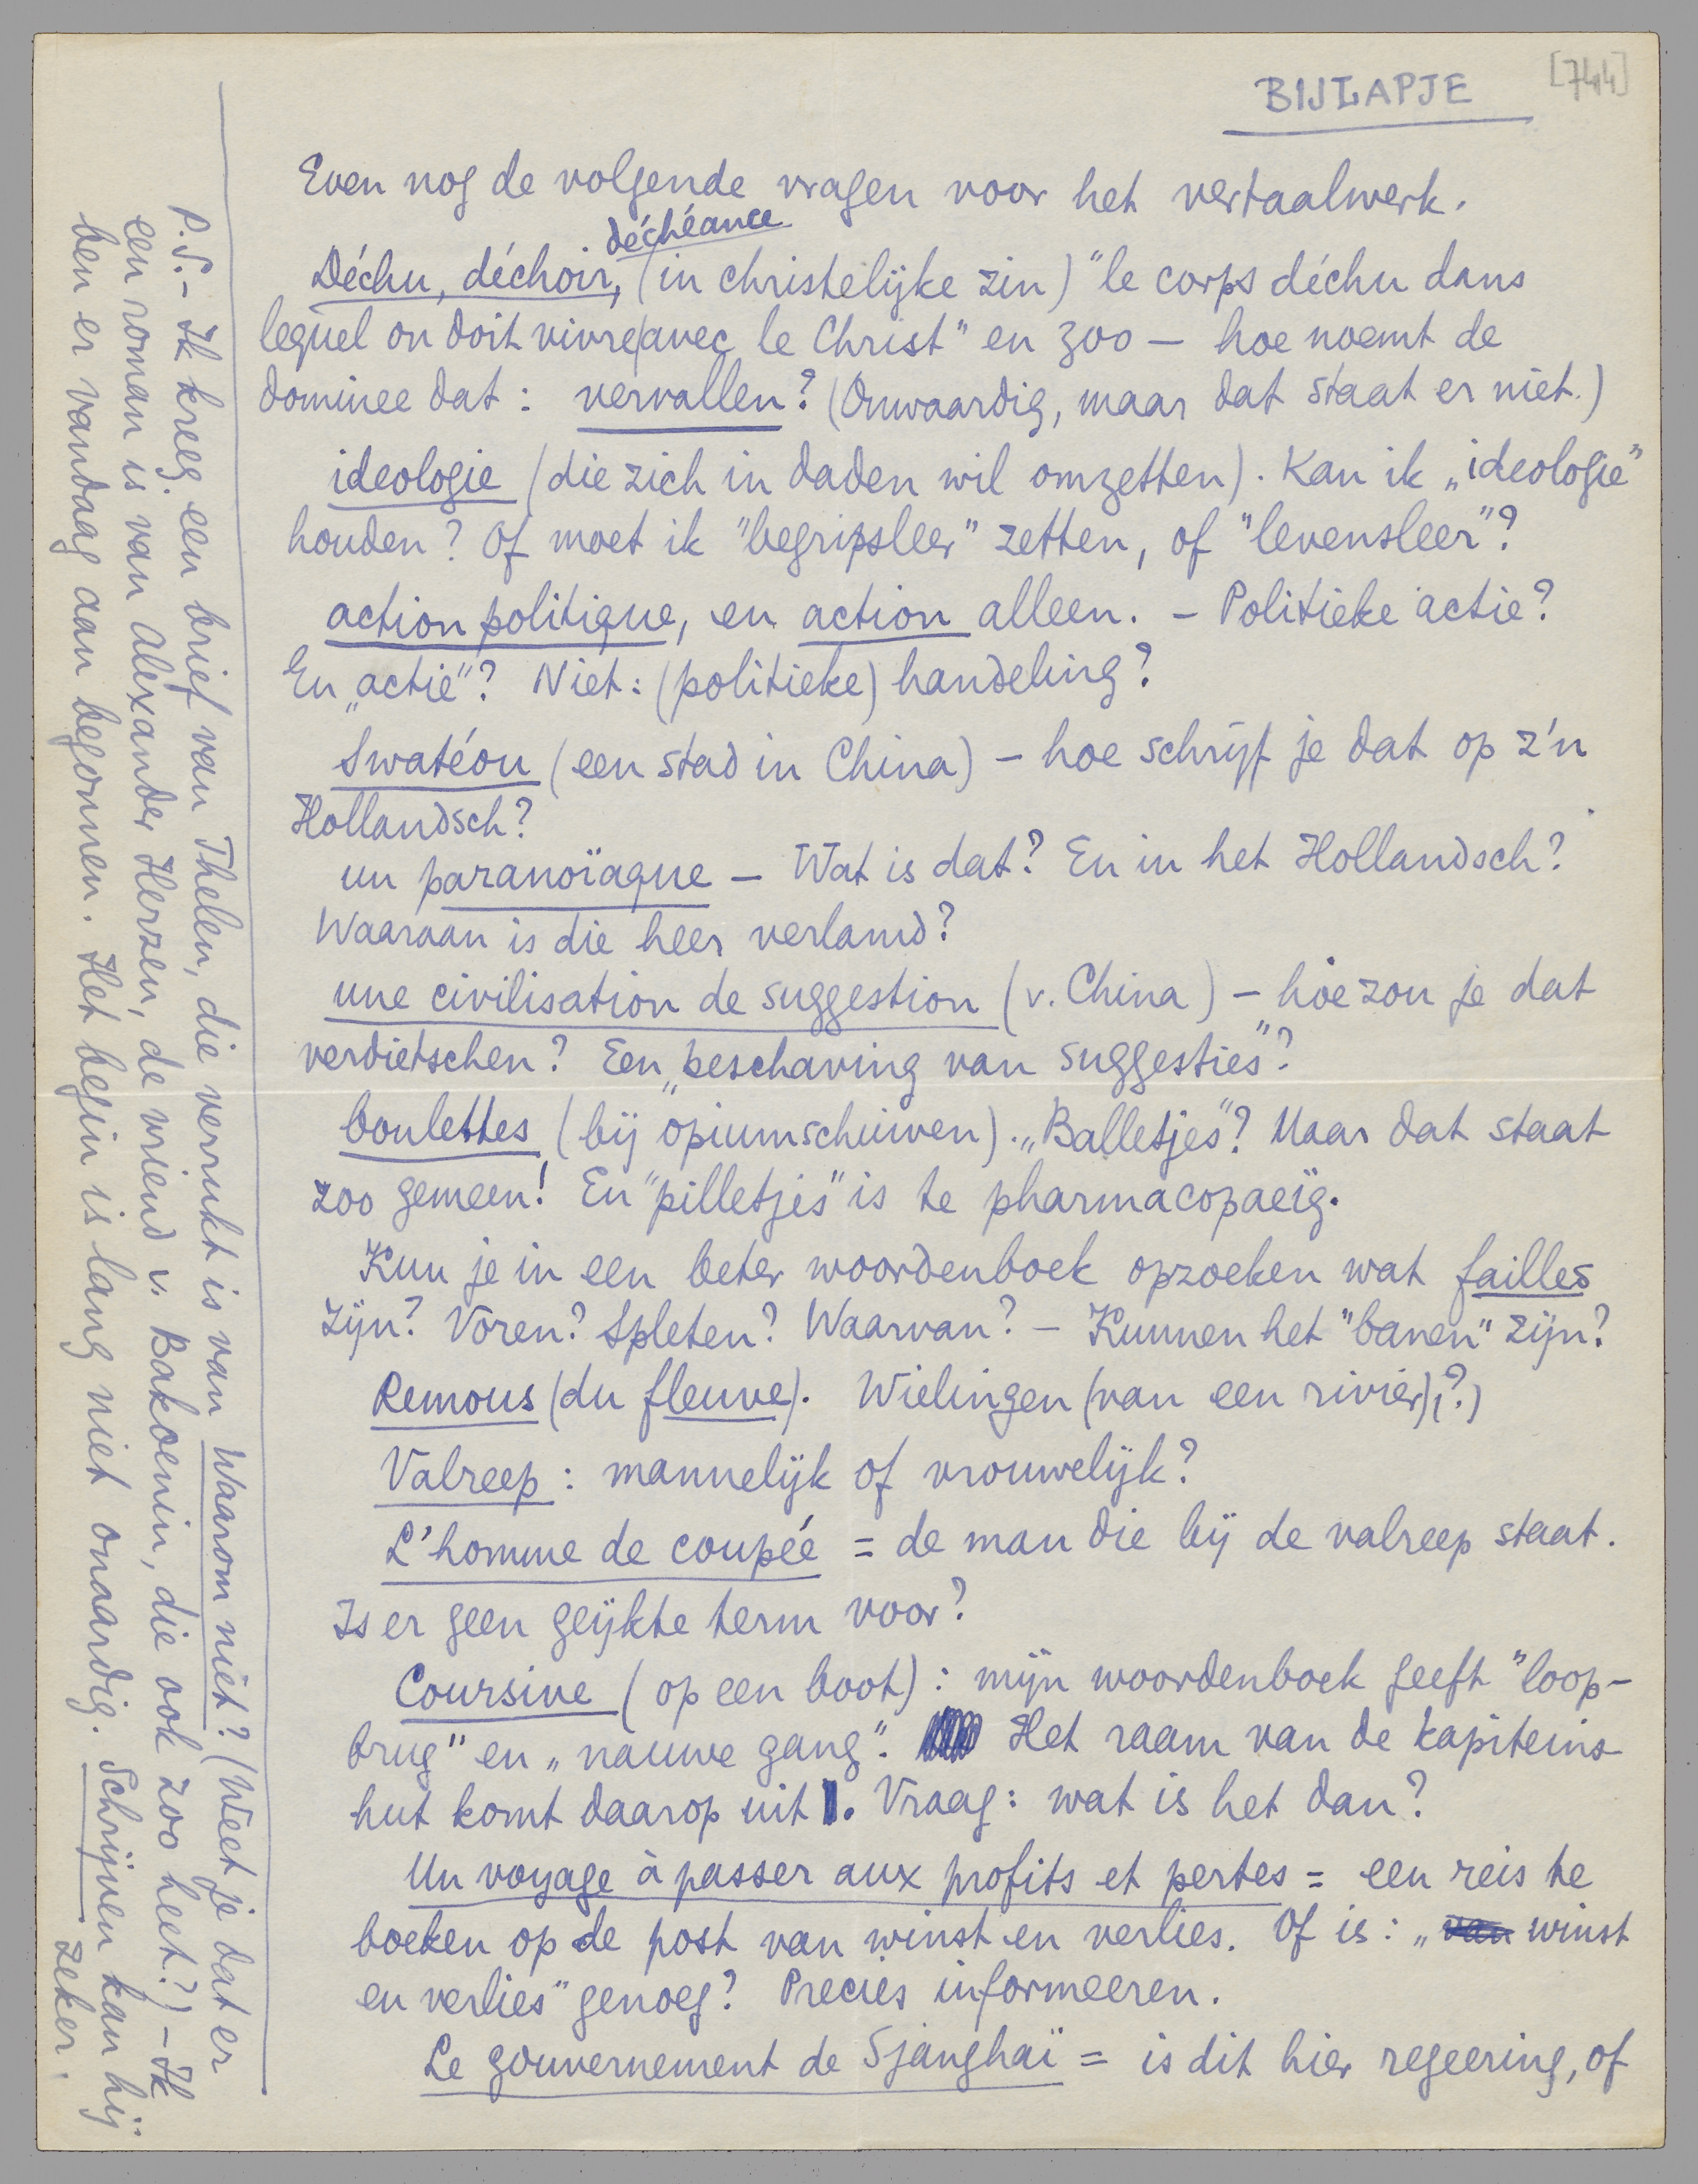 BIJLAPJE
[744]
Even nog de volgende vragen voor het vertaalwerk.
déchéance
Déchu, déchoir, (in christelijke zin) "le corps déchu dans
lequel on doit vivre (avec le Christ" en zoo — hoe noemt de
dominee dat: vervallen? (Onwaardig, maar dat staat er niet.)
ideologie (die zich in daden wil omzetten). Kan ik „ideologie"
houden? Of moet ik "begripsleer" zetten, of "levensleer"?
action politique, en action alleen. - Politieke actie?
En „actie"? Niet: (politieke) handeling?
Swatéou (een stad in China) - hoe schrijf je dat op z'n
Hollandsch?
un paranoïaque — Wat is dat? En in het Hollandsch?
Waaraan is die heer verlamd?
une civilisation de suggestion (v. China) - hoe zou je dat
verdietschen? Een „beschaving van suggesties"?
boulettes (bij opiumschuiven). „Balletjes"? Maar dat staat
zoo gemeen! En "pilletjes" is te pharmacopaeïg.
Kun je in een beter woordenboek opzoeken wat failles
zijn? Voren? Spleten? Waarvan? — Kunnen het "banen" zijn?
Remous (du fleuve). Wielingen (van een rivier) (?)
Valreep: mannelijk of vrouwelijk?
L'homme de coupée = de man die bij de valreep staat.
Is er geen geijkte term voor?
Coursive (op een boot): mijn woordenboek geeft "loop-
brug" en „nauwe gang". Het raam van de kapiteins-
hut komt daarop uit. Vraag: wat is het dan?
Un voyage à passer aux profits et pertes = een reis te
boeken op de post van winst en verlies. Of is: „van winst
en verlies" genoeg? Precies informeeren.
Le gouvernement de Sjanghaï = is dit hier regeering, of
P.S.- Ik kreeg een brief van Thelen, die verrukt is van Waarom niet? (Weet je dat er
een roman is van Alexander Herzen, de vriend v. Bakoenin, die ook zoo heet?) - Ik
ben er vandaag aan begonnen. Het begin is lang niet onaardig. Schrijven kan hij
zeker.